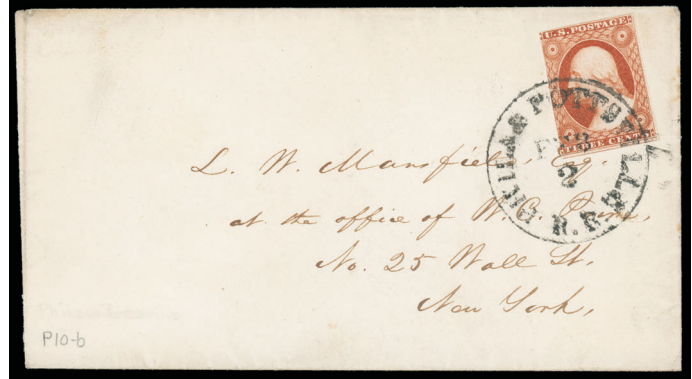 U.S. POSTAGE
THREE CENTS
PHILA & POTTSV'LLE R.R.
FEB
2
L. W. Mansfield, Esq.
at the office of W. C. Prime,
No. 25 Wall St.
New York.
P10-b